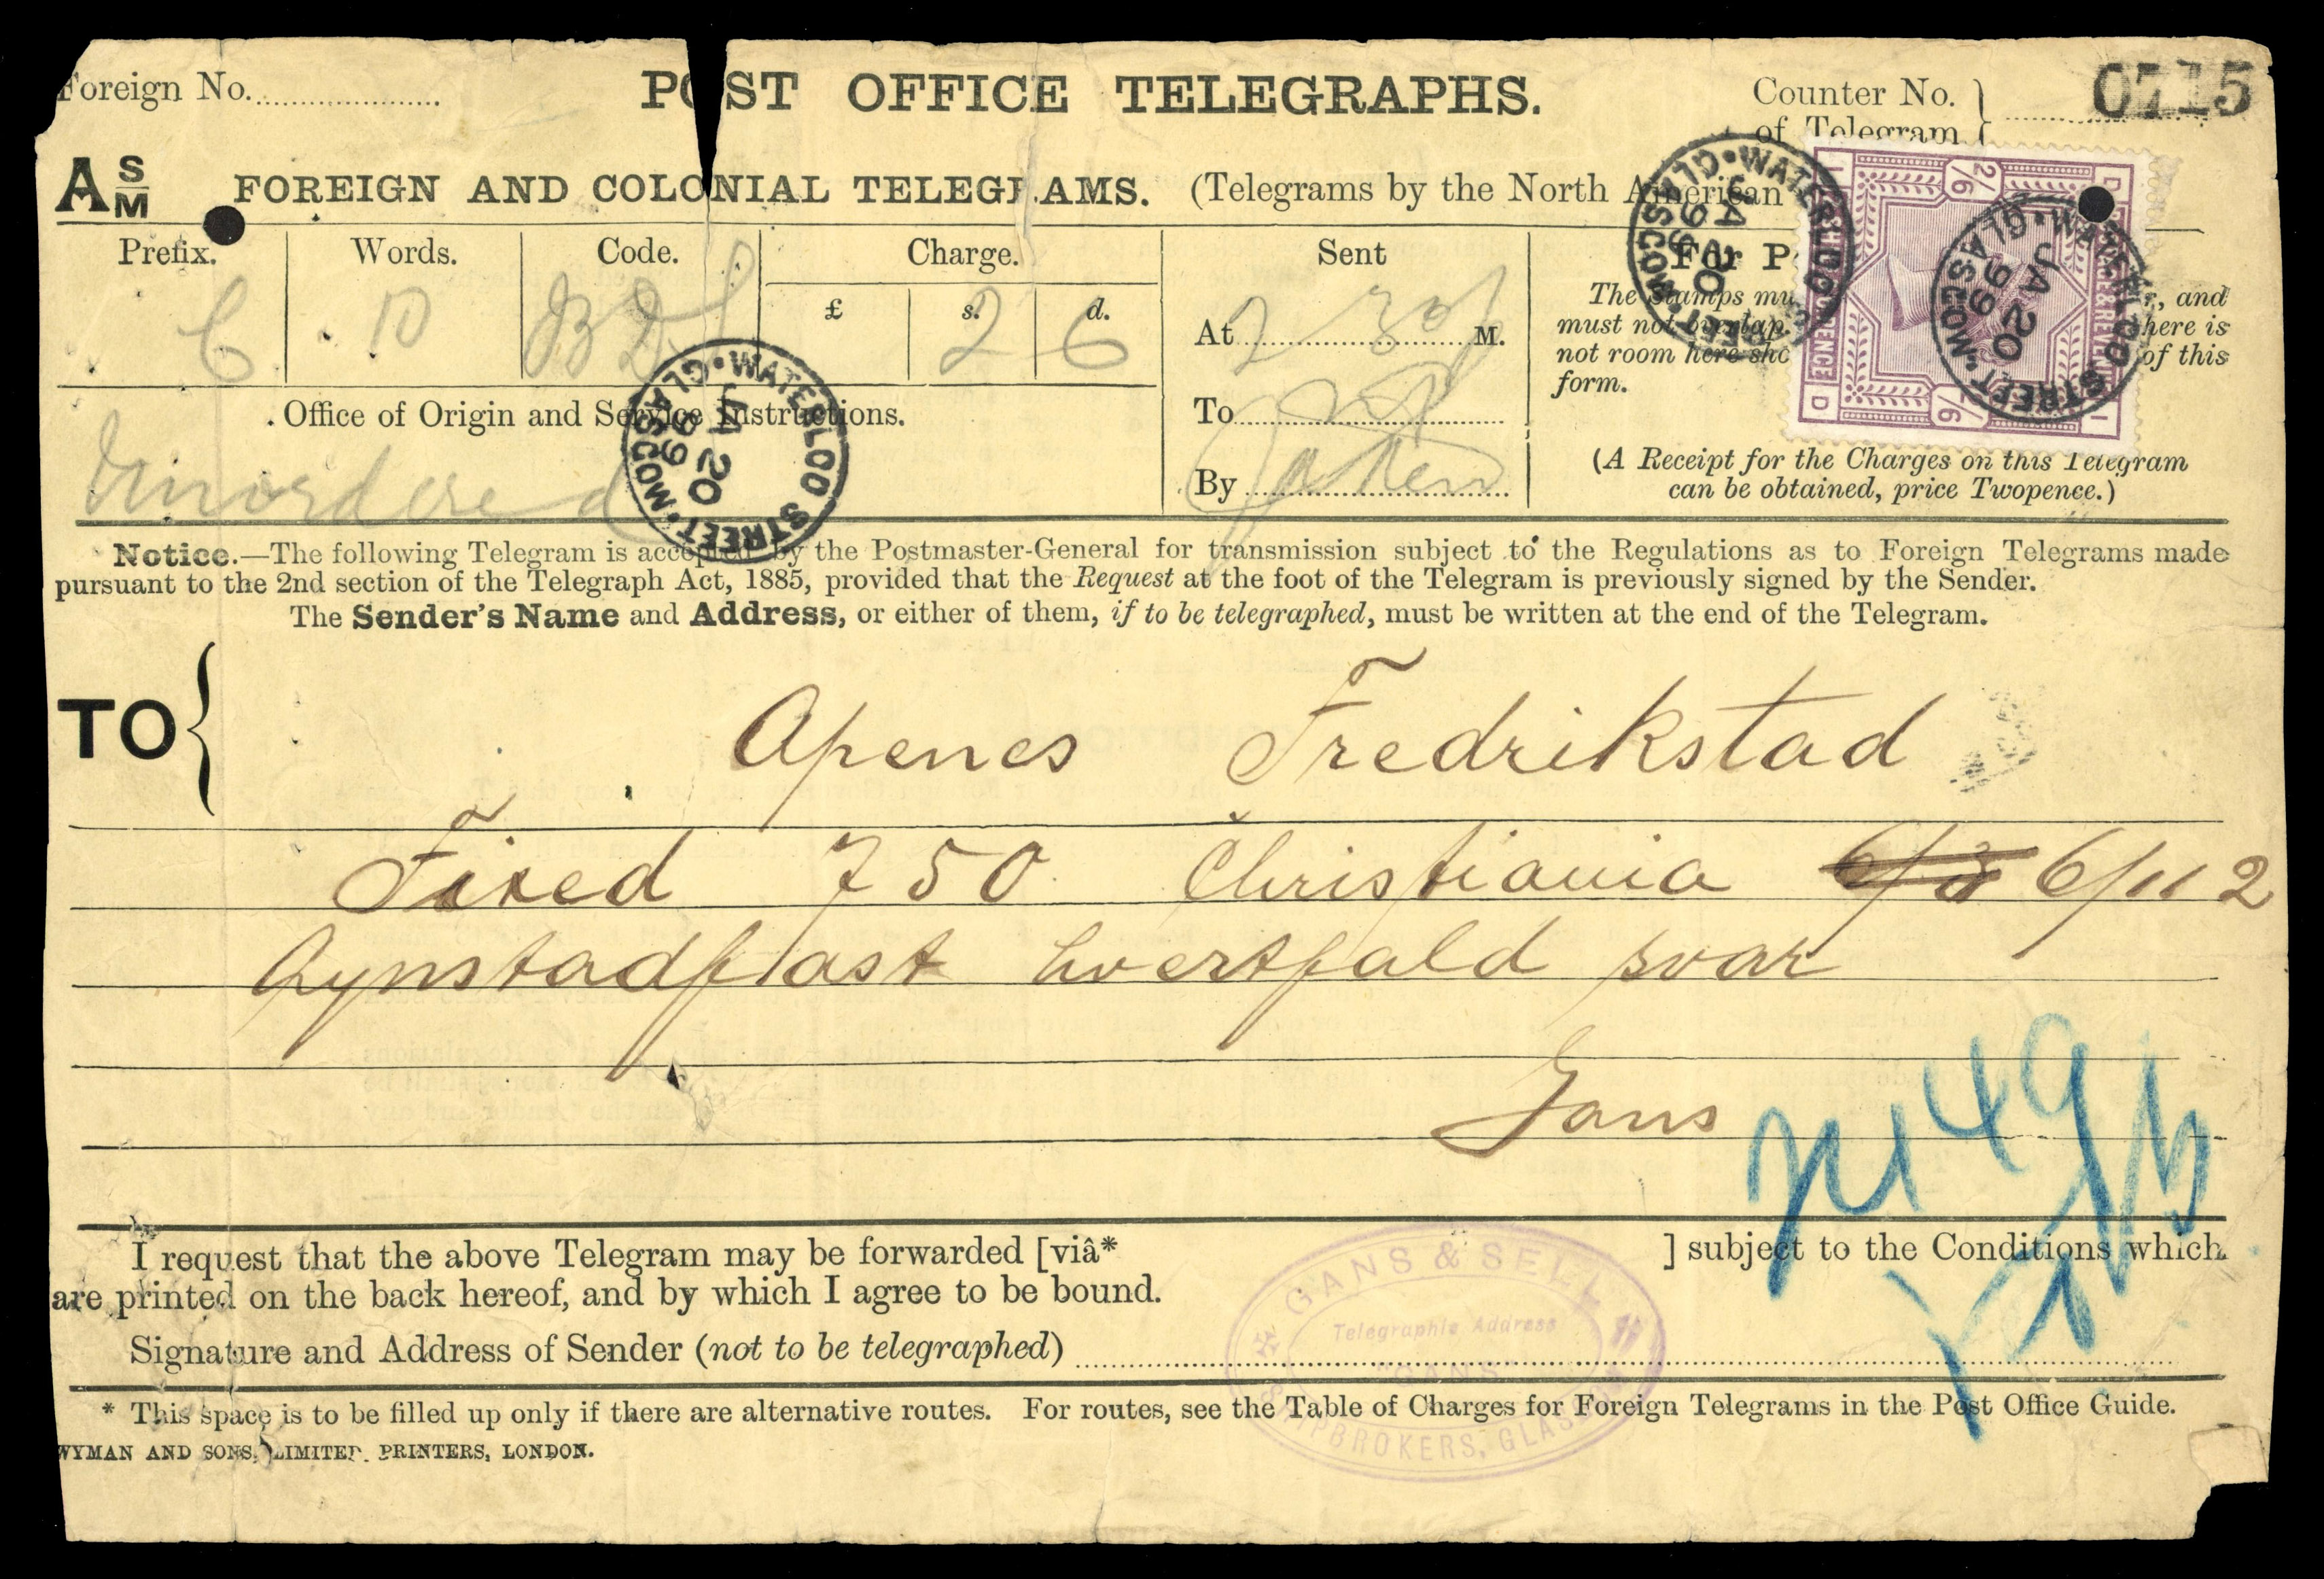 Foreign No.
POST OFFICE TELEGRAPHS.
Counter No.
of Telegram
0715
A S M
FOREIGN AND COLONIAL TELEGRAMS.
(Telegrams by the North American
Prefix.
Words.
Code.
Charge.
Sent
For P
£
s.
d.
2 6
The Stamps mu r, and
must not overlap. here is
not room here sho of this
form.
At 2 30 M.
To
By
Office of Origin and Service Instructions.
(A Receipt for the Charges on this Telegram
can be obtained, price Twopence.)
WATERLOO STREET • GLASGOW •
JA 20
99
WATERLOO STREET • GLASGOW •
JA 20
99
WATERLOO STREET • GLASGOW •
JA 20
99
2/6
2/6
Notice.—The following Telegram is accepted by the Postmaster-General for transmission subject to the Regulations as to Foreign Telegrams made
pursuant to the 2nd section of the Telegraph Act, 1885, provided that the Request at the foot of the Telegram is previously signed by the Sender.
The Sender's Name and Address, or either of them, if to be telegraphed, must be written at the end of the Telegram.
TO
Apenes Fredrikstad
Fixed 750 Christiania 6/11 2
svar
Gans
I request that the above Telegram may be forwarded [viâ* ] subject to the Conditions which
are printed on the back hereof, and by which I agree to be bound.
Signature and Address of Sender (not to be telegraphed)
GANS & SELL
Telegraphic Address
"GANS"
SHIPBROKERS, GLASGOW
* This space is to be filled up only if there are alternative routes. For routes, see the Table of Charges for Foreign Telegrams in the Post Office Guide.
WYMAN AND SONS, LIMITED, PRINTERS, LONDON.